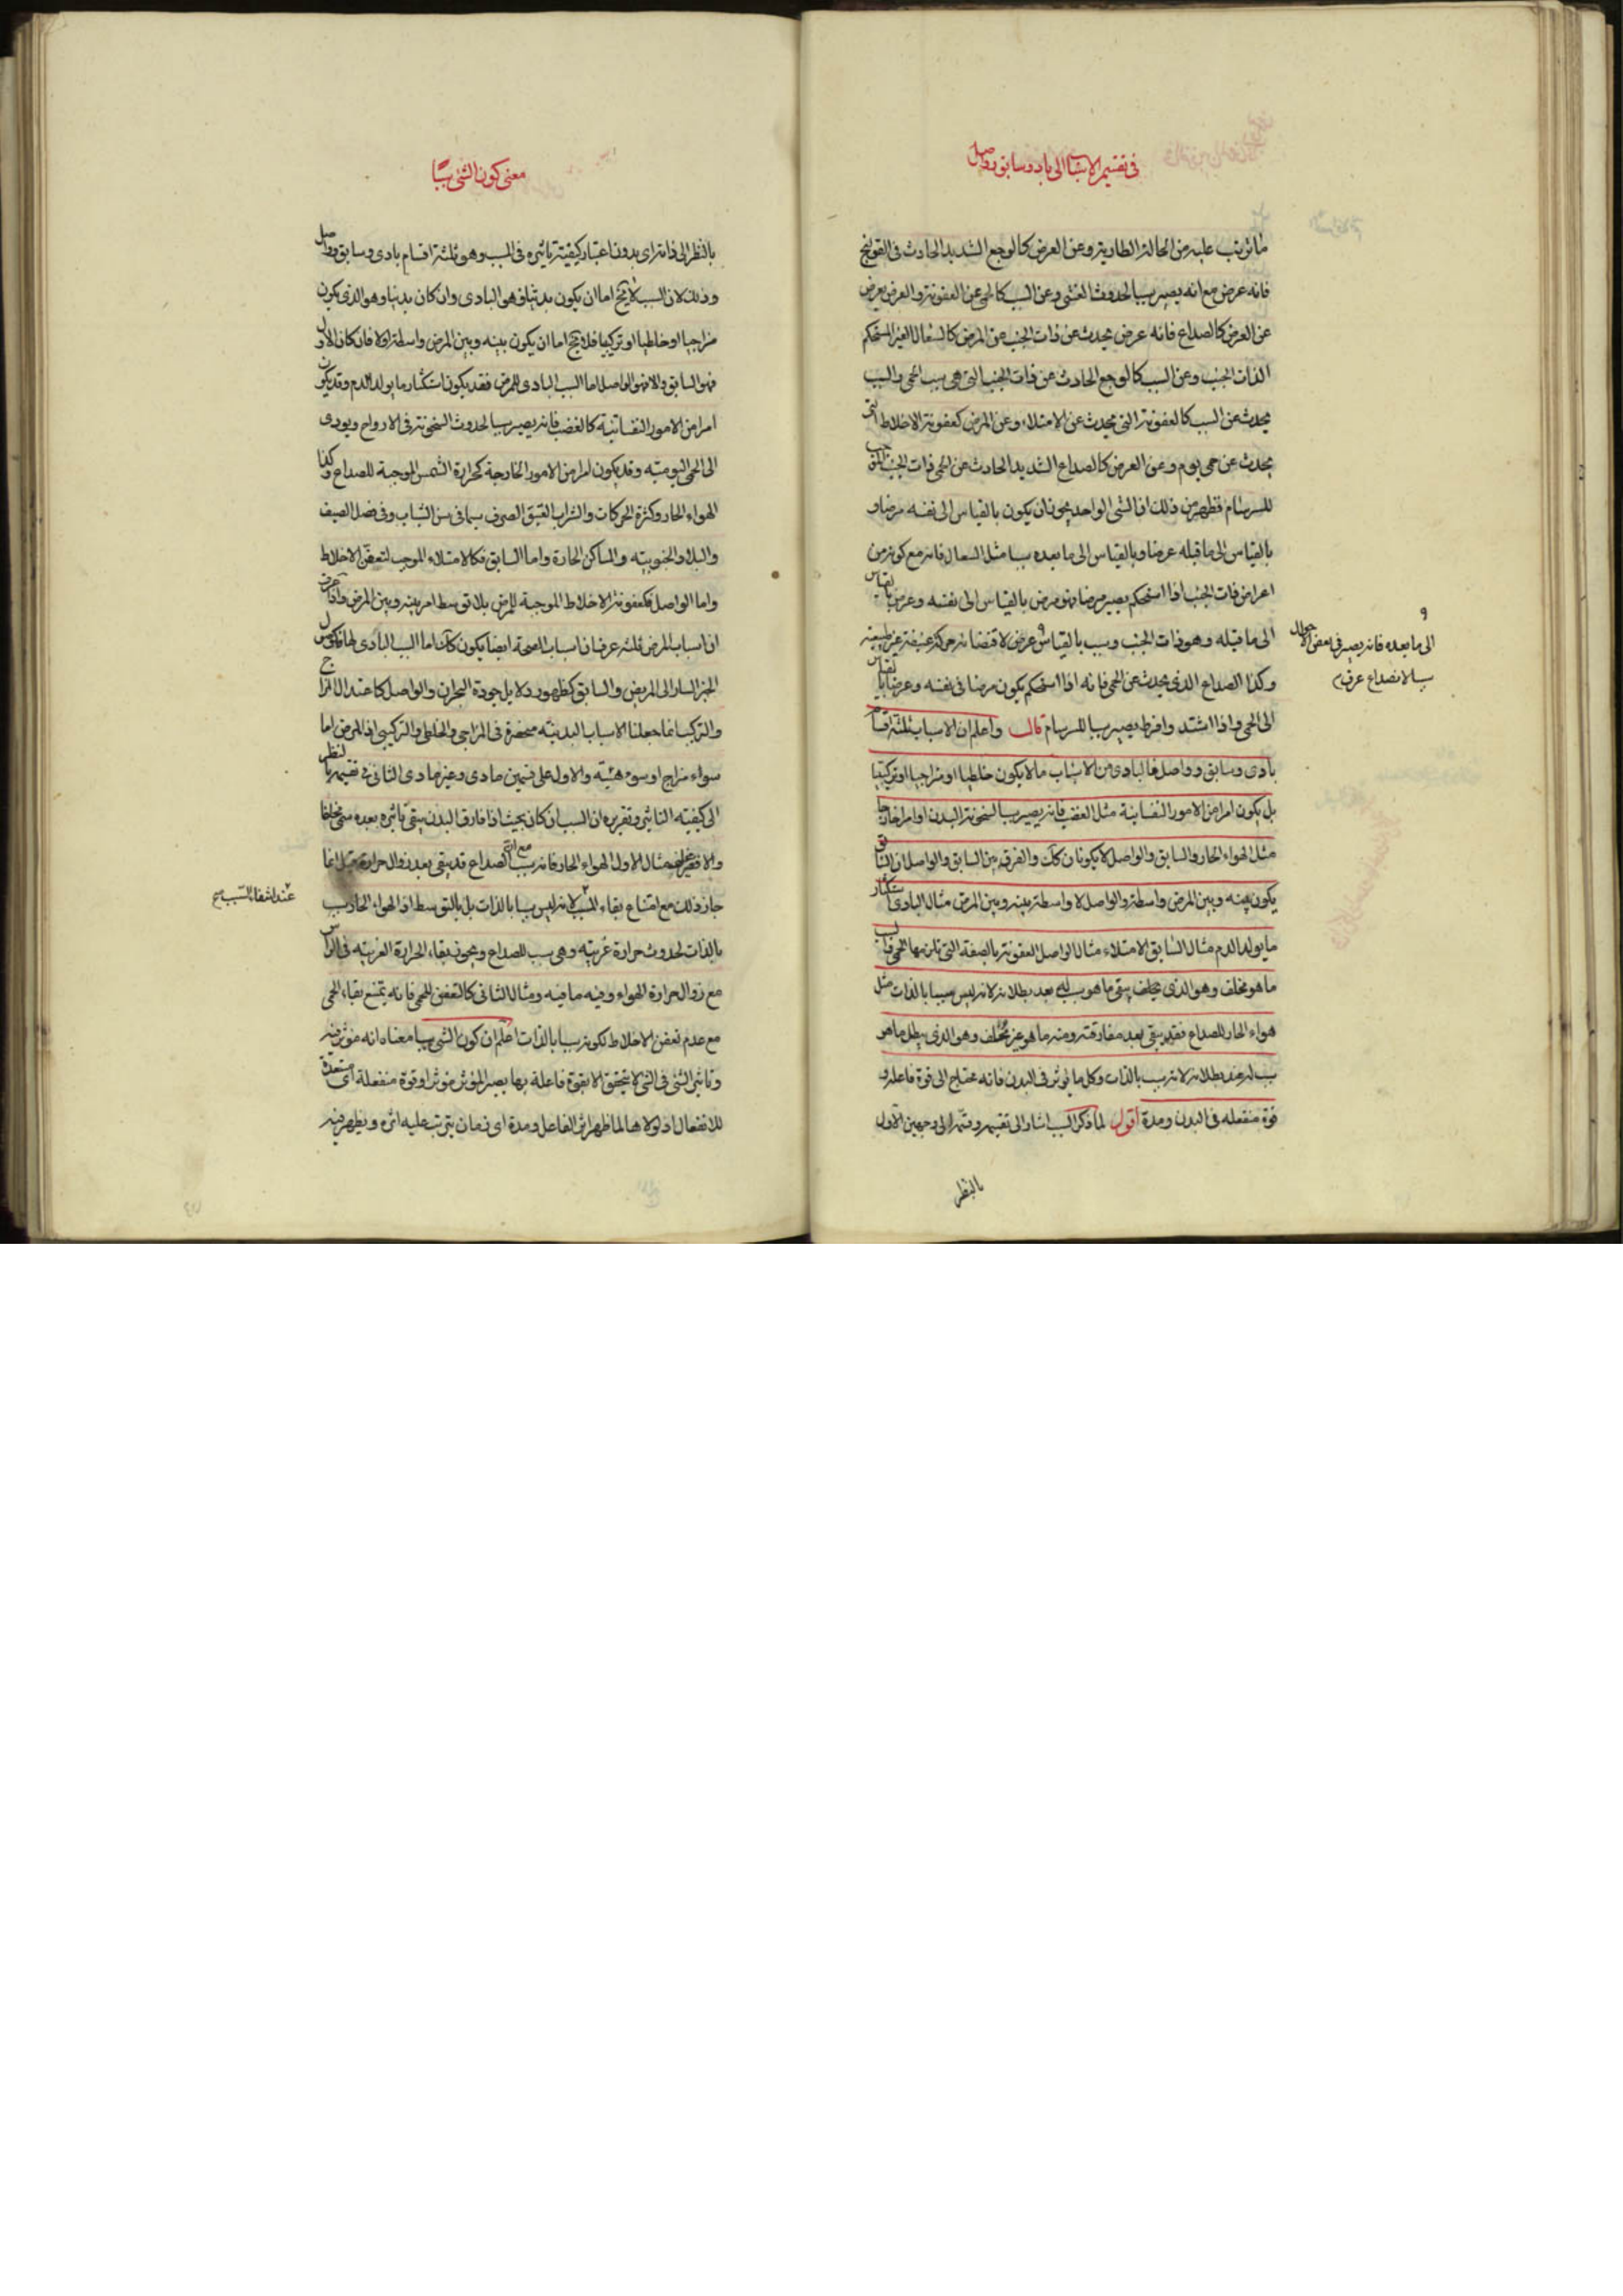 في تقسيم الاسباب الى باد وسابق وواصل
ما يترتب عليه من الحالة الطارية وعن العرض كالوجع الشديد الحادث في القولنج
فانه عرض مع انه يصير سببا لحدوث الغشى وعن السبب كالحمى عن العفونة والعرض يعرض
عن العرض كالصداع فانه عرض يحدث عن ذات الجنب عن المرض كالسعال الغير المستحكم
الذات الجنب وعن السبب كالوجع الحادث عن ذات الجنب التى هى سبب الحمى والسبب
يحدث عن السبب كالعفونة التى يحدث عن الامتلاء وعن المرض كعفونة الاخلاط التى
يحدث عن حمى يوم وعن العرض كالصداع الشديد الحادث عن الحمى ذات الجنب
للسرسام فظهر من ذلك ان الشى الواحد يجوز ان يكون بالقياس الى نفسه مرضا و
بالقياس الى ما قبله عرضا وبالقياس الى ما بعده سببا مثل السعال فانه مع كونه من
اعراض ذات الجنب اذا استحكم يصير مرضا فهو مرض بالقياس الى نفسه وعرض بالقياس
الى ما قبله وهو ذات الجنب وسبب بالقياس عرض لاقتضائه حركة عنيفة غير طبيعية
الى ما بعده فانه يصير في بعض الاحوال
سببا لانصداع عرق
وكذا الصداع الذى يحدث عن الحمى فانه اذا استحكم يكون مرضا فى نفسه وعرضا بالقياس
الى الحمى واذا اشتد وافرط يصير سببا للسرسام قال واعلم ان الاسباب ثلثة اقسام
بادى وسابق وواصل فالبادى من الاسباب ما لا يكون خلطيا او مزاجيا او تركيبيا
بل يكون امرا من الامور النفسانية مثل الغضب فانه يصير سببا لسخونة البدن او امرا خارجا
مثل الهواء الحار والسابق والواصل لا يكونان كذلك والفرق بين السابق والواصل ان السابق
يكون بينه وبين المرض واسطة والواصل لا واسطة بينه وبين المرض مثال البادى استكثار
ما يولد الدم مثال السابق الامتلاء مثال الواصل العفونة بالصفة التى تلزمها الحمى
ما هو مخلف وهو الذى يخلف يبقى ما هو سببه بعد بطلانه لانه ليس سببا بالذات مثل
هواء الحار للصداع فقد يبقى بعد مفارقته ومنه ما هو غير مخلف وهو الذى يبطل ما هو
سبب له عند بطلانه لانه سبب بالذات وكل ما يوثر فى البدن فانه محتاج الى قوة فاعلة و
قوة منفعله فى البدن ومدة اقول لما ذكر السبب اشار الى تقسيمه وقسمه الى وجهين الاول
بالنظر
معنى كون الشى سببا
بالنظر الى ذاته اى بدون اعتبار كيفية تاثيره فى المسبب وهو ثلثة اقسام بادى وسابق وواصل
وذلك لان السبب لا يخ اما ان يكون بدنيا فهو البادى وان كان بدنيا وهو الذى يكون
مزاجيا او خلطيا او تركيبيا فلا يخ اما ان يكون بينه وبين المرض واسطة او لا فان كان الاول
فهو السابق والا فهو الواصل اما السبب البادى للمرض فقد يكون استكثار ما يولد الدم وقد يكون
امرا من الامور النفسانية كالغضب فانه يصير سببا لحدوث السخونة فى الارواح ويودى
الى الحمى اليومية وقد يكون امرا من الامور الخارجة كحرارة الشمس الموجبة للصداع وكذا
الهواء الحار وكثرة الحركات والشراب العتيق الصرف سيما فى سن الشباب وفى فصل الصيف
والبلاد الجنوبية والمساكن الحارة واما السابق فكالامتلاء الموجب لتعفن الاخلاط
واما الواصل فكعفونة الاخلاط الموجبة للمرض بلا توسط امر بينه وبين المرض واذا عرفت
ان اسباب المرض ثلثة عرف ان اسباب الصحة ايضا يكون كذلك اما السبب البادى لها فكوصول
الخبر السار الى المريض والسابق كظهور دلايل جودة البحران والواصل كاعتدال المزاج
والتركيب انما جعلنا الاسباب البدنية منحصرة فى المزاجى والخلطى والتركيبى اذ المرض اما
سوء مزاج او سوء هيئة والاول على قسمين مادى وغير مادى الثانى فى تقسيمه بالنظر
الى كيفية التاثير وتقريره ان السبب ان كان بحيث اذا فارق البدن يبقى تاثيره بعده سمى مخلفا
والا فغير مخلف مثال الاول الهواء الحار فانه سبب الصداع مع انه قد يبقى بعد زوال حرارته قيل انما
جاز ذلك مع امتناع بقاء المسبب لانه ليس سببا بالذات بل بالتوسط اذ الهواء الحار سبب
عند انتفاء السبب صح
بالذات لحدوث حرارة غريبه وهى سبب للصداع ويجوز بقاء الحرارة الغريبه فى الراس
مع زوال حرارة الهواء وفيه ما فيه ومثال الثانى كالتعفن للحمى فانه يمتنع بقاء الحمى
مع عدم تعفن الاخلاط لكونه سببا بالذات اعلم ان كون الشى سببا معناه انه موثر فيه
وتاثير الشى فى الشى لا يتحقق الا بقوة فاعلة بها يصير الموثر موثرا وقوة منفعلة اى مستعدة
للانفعال اذ لولاها لما ظهر اثر الفاعل ومدة اى زمان يترتب عليه اثره ويظهر فيه